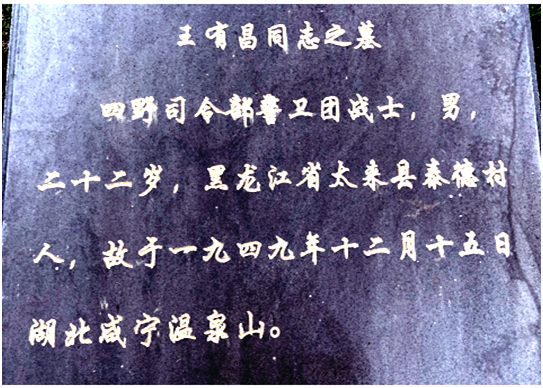 王有昌同志之墓
四野司令部警卫团战士，男，
二十二岁，黑龙江省太来县泰德村
人，故于一九四九年十二月十五日
湖北咸宁温泉山。